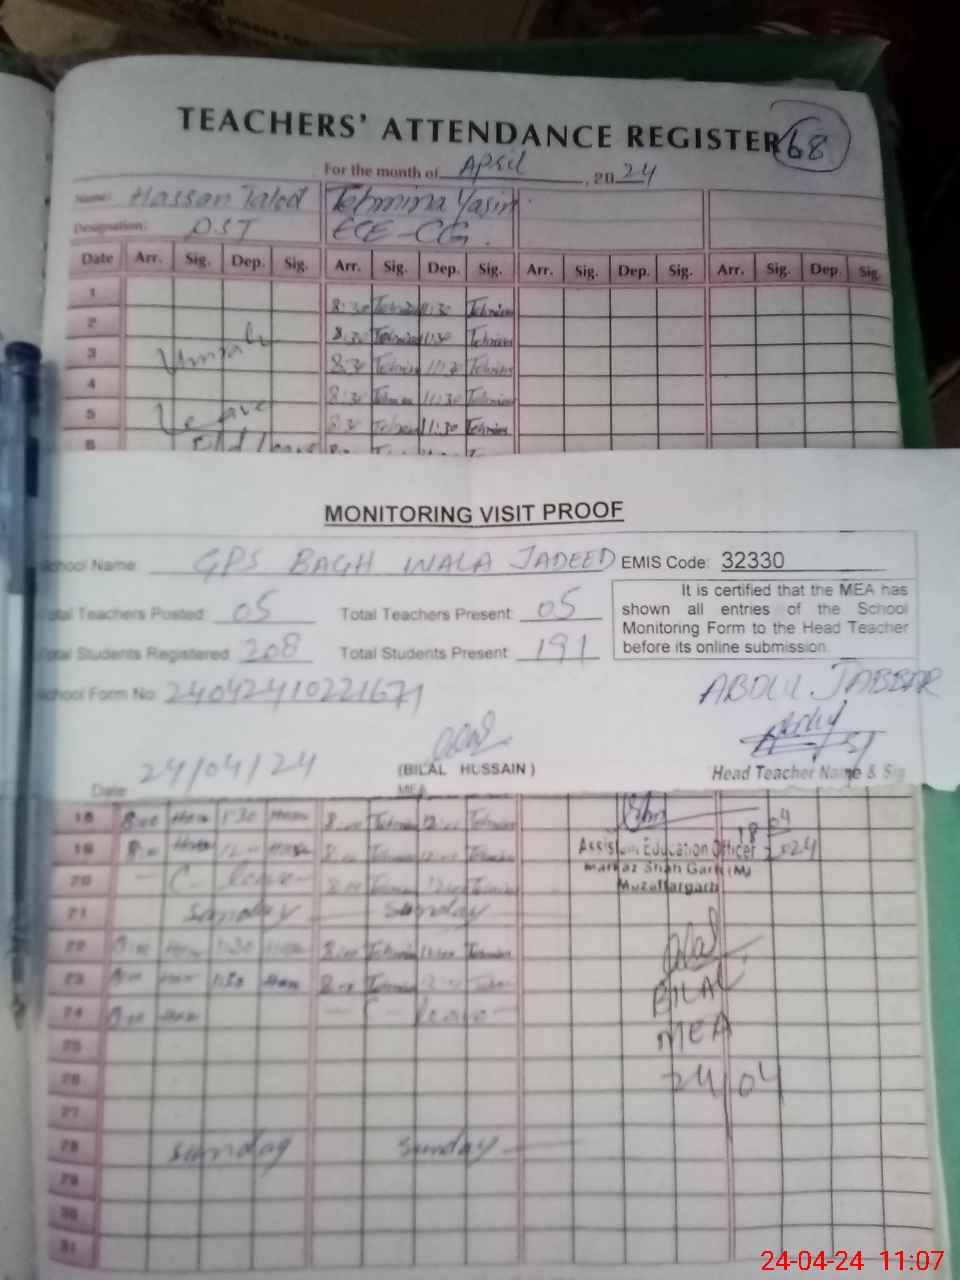 TEACHERS' ATTENDANCE REGISTER 68
For the month of April, 2024
Name: Hassan Tehmina Yasin
Designation: PST ECE-CG.
Date Arr. Sig. Dep. Sig. Arr. Sig. Dep. Sig. Arr. Sig. Dep. Sig. Arr. Sig. Dep. Sig.
1 8:30 Tehmina 11:30 Tehmina
2 8:30 Tehmina 11:30 Tehmina
3 Umrah 8:30 Tehmina 11:30 Tehmina
4 8:30 Tehmina 11:30 Tehmina
5 Leave 8:30 Tehmina 11:30 Tehmina
6 Eid leave
MONITORING VISIT PROOF
School Name GPS BAGH WALA JADEED EMIS Code: 32330
Total Teachers Posted: 05 Total Teachers Present: 05
Total Students Registered: 208 Total Students Present: 191
It is certified that the MEA has
shown all entries of the School
Monitoring Form to the Head Teacher
before its online submission.
School Form No: 24042410221671
ABDUL JABBAR
24/04/24
(BILAL HUSSAIN)
Date MEA Head Teacher Name & Sig
18 8:00 Hassan 1:30 Hassan 8:00 Tehmina 12:00 Tehmina
18/04
2024
19 8:00 Hassan 12:00 Hassan 8:00 Tehmina 12:00 Tehmina
Assistant Education Officer
Markaz Shah Garh (M)
Muzaffargarh
20 - C - leave - 8:00 Tehmina 12:00 Tehmina
21 Sunday Sunday
22 8:00 Hassan 1:30 Hassan 8:00 Tehmina 12:00 Tehmina
23 8:00 Hassan 1:30 Hassan 8:00 Tehmina 12:00 Tehmina
24 8:00 Hassan - C - leave -
BILAL
MEA
24/04
25
26
27
28 Sunday Sunday
29
30
31
24-04-24 11:07